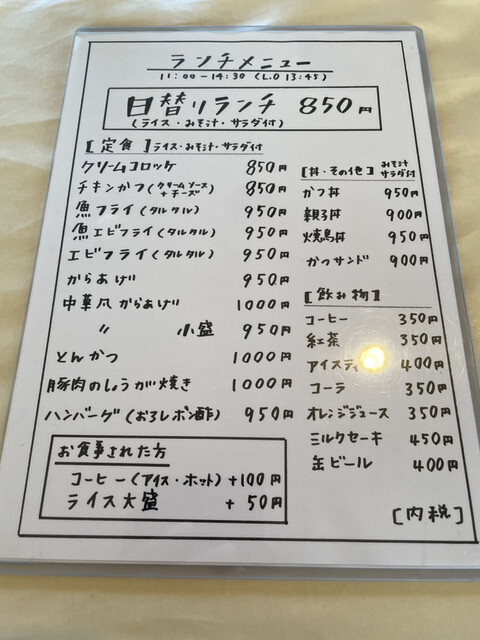 ランチメニュー
11:00-14:30 (L.O 13:45)
日替りランチ 850円
(ライス・みそ汁・サラダ付)
[定食]ライス・みそ汁・サラダ付
クリームコロッケ 850円
チキンかつ(クリームソース+チーズ) 850円
魚フライ(タルタル) 950円
魚エビフライ(タルタル) 950円
エビフライ(タルタル) 950円
からあげ 950円
中華風からあげ 1000円
〃 小盛 950円
とんかつ 1000円
豚肉のしょうが焼き 1000円
ハンバーグ(おろしポン酢) 950円
お食事された方
コーヒー(アイス・ホット)+100円
ライス大盛 +50円
[丼・その他]みそ汁サラダ付
かつ丼 950円
親子丼 900円
焼鳥丼 950円
かつサンド 900円
[飲み物]
コーヒー 350円
紅茶 350円
アイスティ 400円
コーラ 350円
オレンジジュース 350円
ミルクセーキ 450円
缶ビール 400円
[内税]